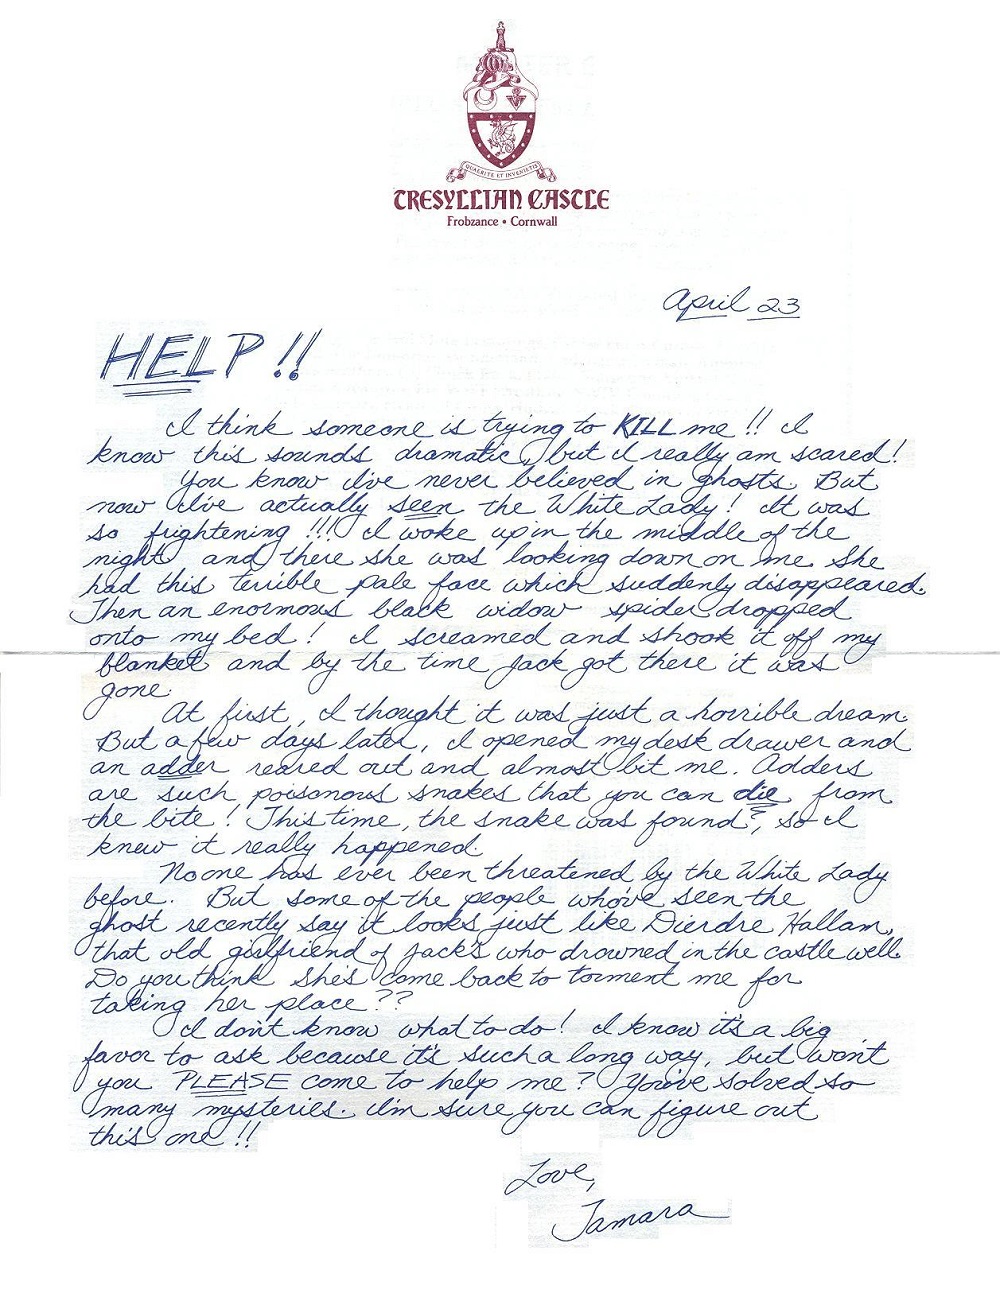 QUAERITE ET INVENIETIS
TRESYLLIAN CASTLE
Frobzance • Cornwall
April 23
HELP!!
I think someone is trying to KILL me!! I
know this sounds dramatic, but I really am scared!
You know I've never believed in ghosts. But
now I've actually seen the White Lady! It was
so frightening!!! I woke up in the middle of the
night and there she was looking down on me. She
had this terrible pale face which suddenly disappeared.
Then an enormous black widow spider dropped
onto my bed! I screamed and shook it off my
blanket and by the time Jack got there it was
gone.
At first, I thought it was just a horrible dream.
But a few days later, I opened my desk drawer and
an adder reared out and almost bit me. Adders
are such poisonous snakes that you can die from
the bite! This time, the snake was found, so I
knew it really happened.
No one has ever been threatened by the White Lady
before. But some of the people who've seen the
ghost recently say it looks just like Dierdre Hallam,
that old girlfriend of Jack's who drowned in the castle well.
Do you think she's come back to torment me for
taking her place??
I don't know what to do! I know it's a big
favor to ask because it's such a long way, but won't
you PLEASE come to help me? You've solved so
many mysteries. I'm sure you can figure out
this one!!
Love,
Tamara